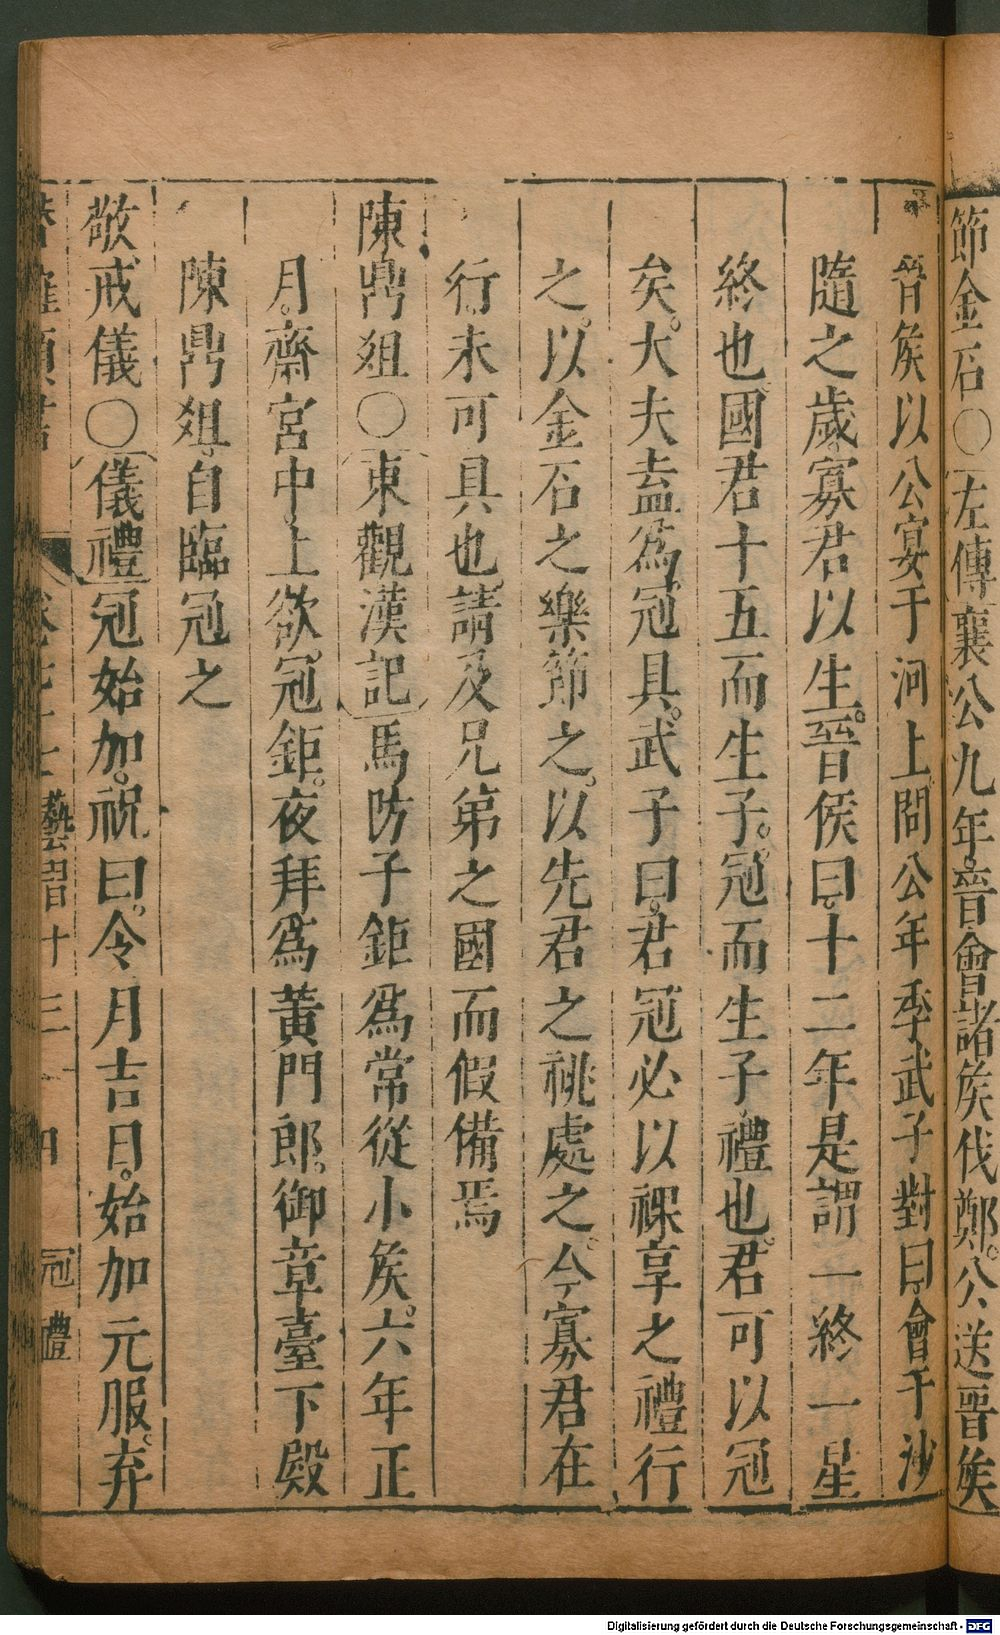 節金石〇左傳襄公九年晉會諸矦伐鄭。公送晉矦
晉矦以公宴于河上問公年季武子對曰會于沙
隨之歲寡君以生。晉侯曰。十二年是謂一終一星
終也國君十五而生子。冠而生子禮也。君可以冠
矣。大夫盍爲冠具。武子曰。君冠必以祼享之禮行
之。以金石之樂節之。以先君之祧處之。今寡君在
行未可具也請及兄弟之國而假備焉
陳鼎俎〇東觀漢記馬防子鉅爲常從小矦。六年正
月。齋宮中。上欲冠鉅。夜拜爲黃門郎。御章臺下殿
陳鼎俎。自臨冠之
敬戒儀〇儀禮冠始加。祝曰。令月吉日。始加元服。弃
藝習十三 冠禮
Digitalisierung gefördert durch die Deutsche Forschungsgemeinschaft - DFG